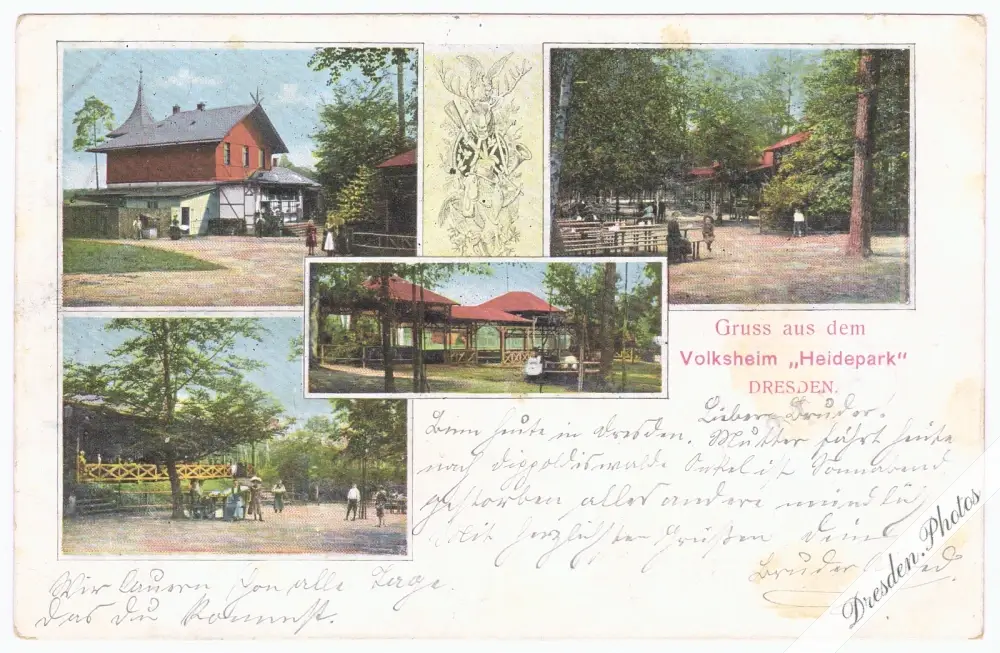 Gruss aus dem
Volksheim „Heidepark"
DRESDEN.
Lieber Bruder!
Binn heute in Dresden. Mutter fährt heute
nach Dippoldiswalde Onkel ist Sonnabend
gestorben alles andere mündlich
Mit herzlichsten Grüßen Dein
Bruder
Wir lauern schon alle Tage.
das du kommst.
Dresden.Photos